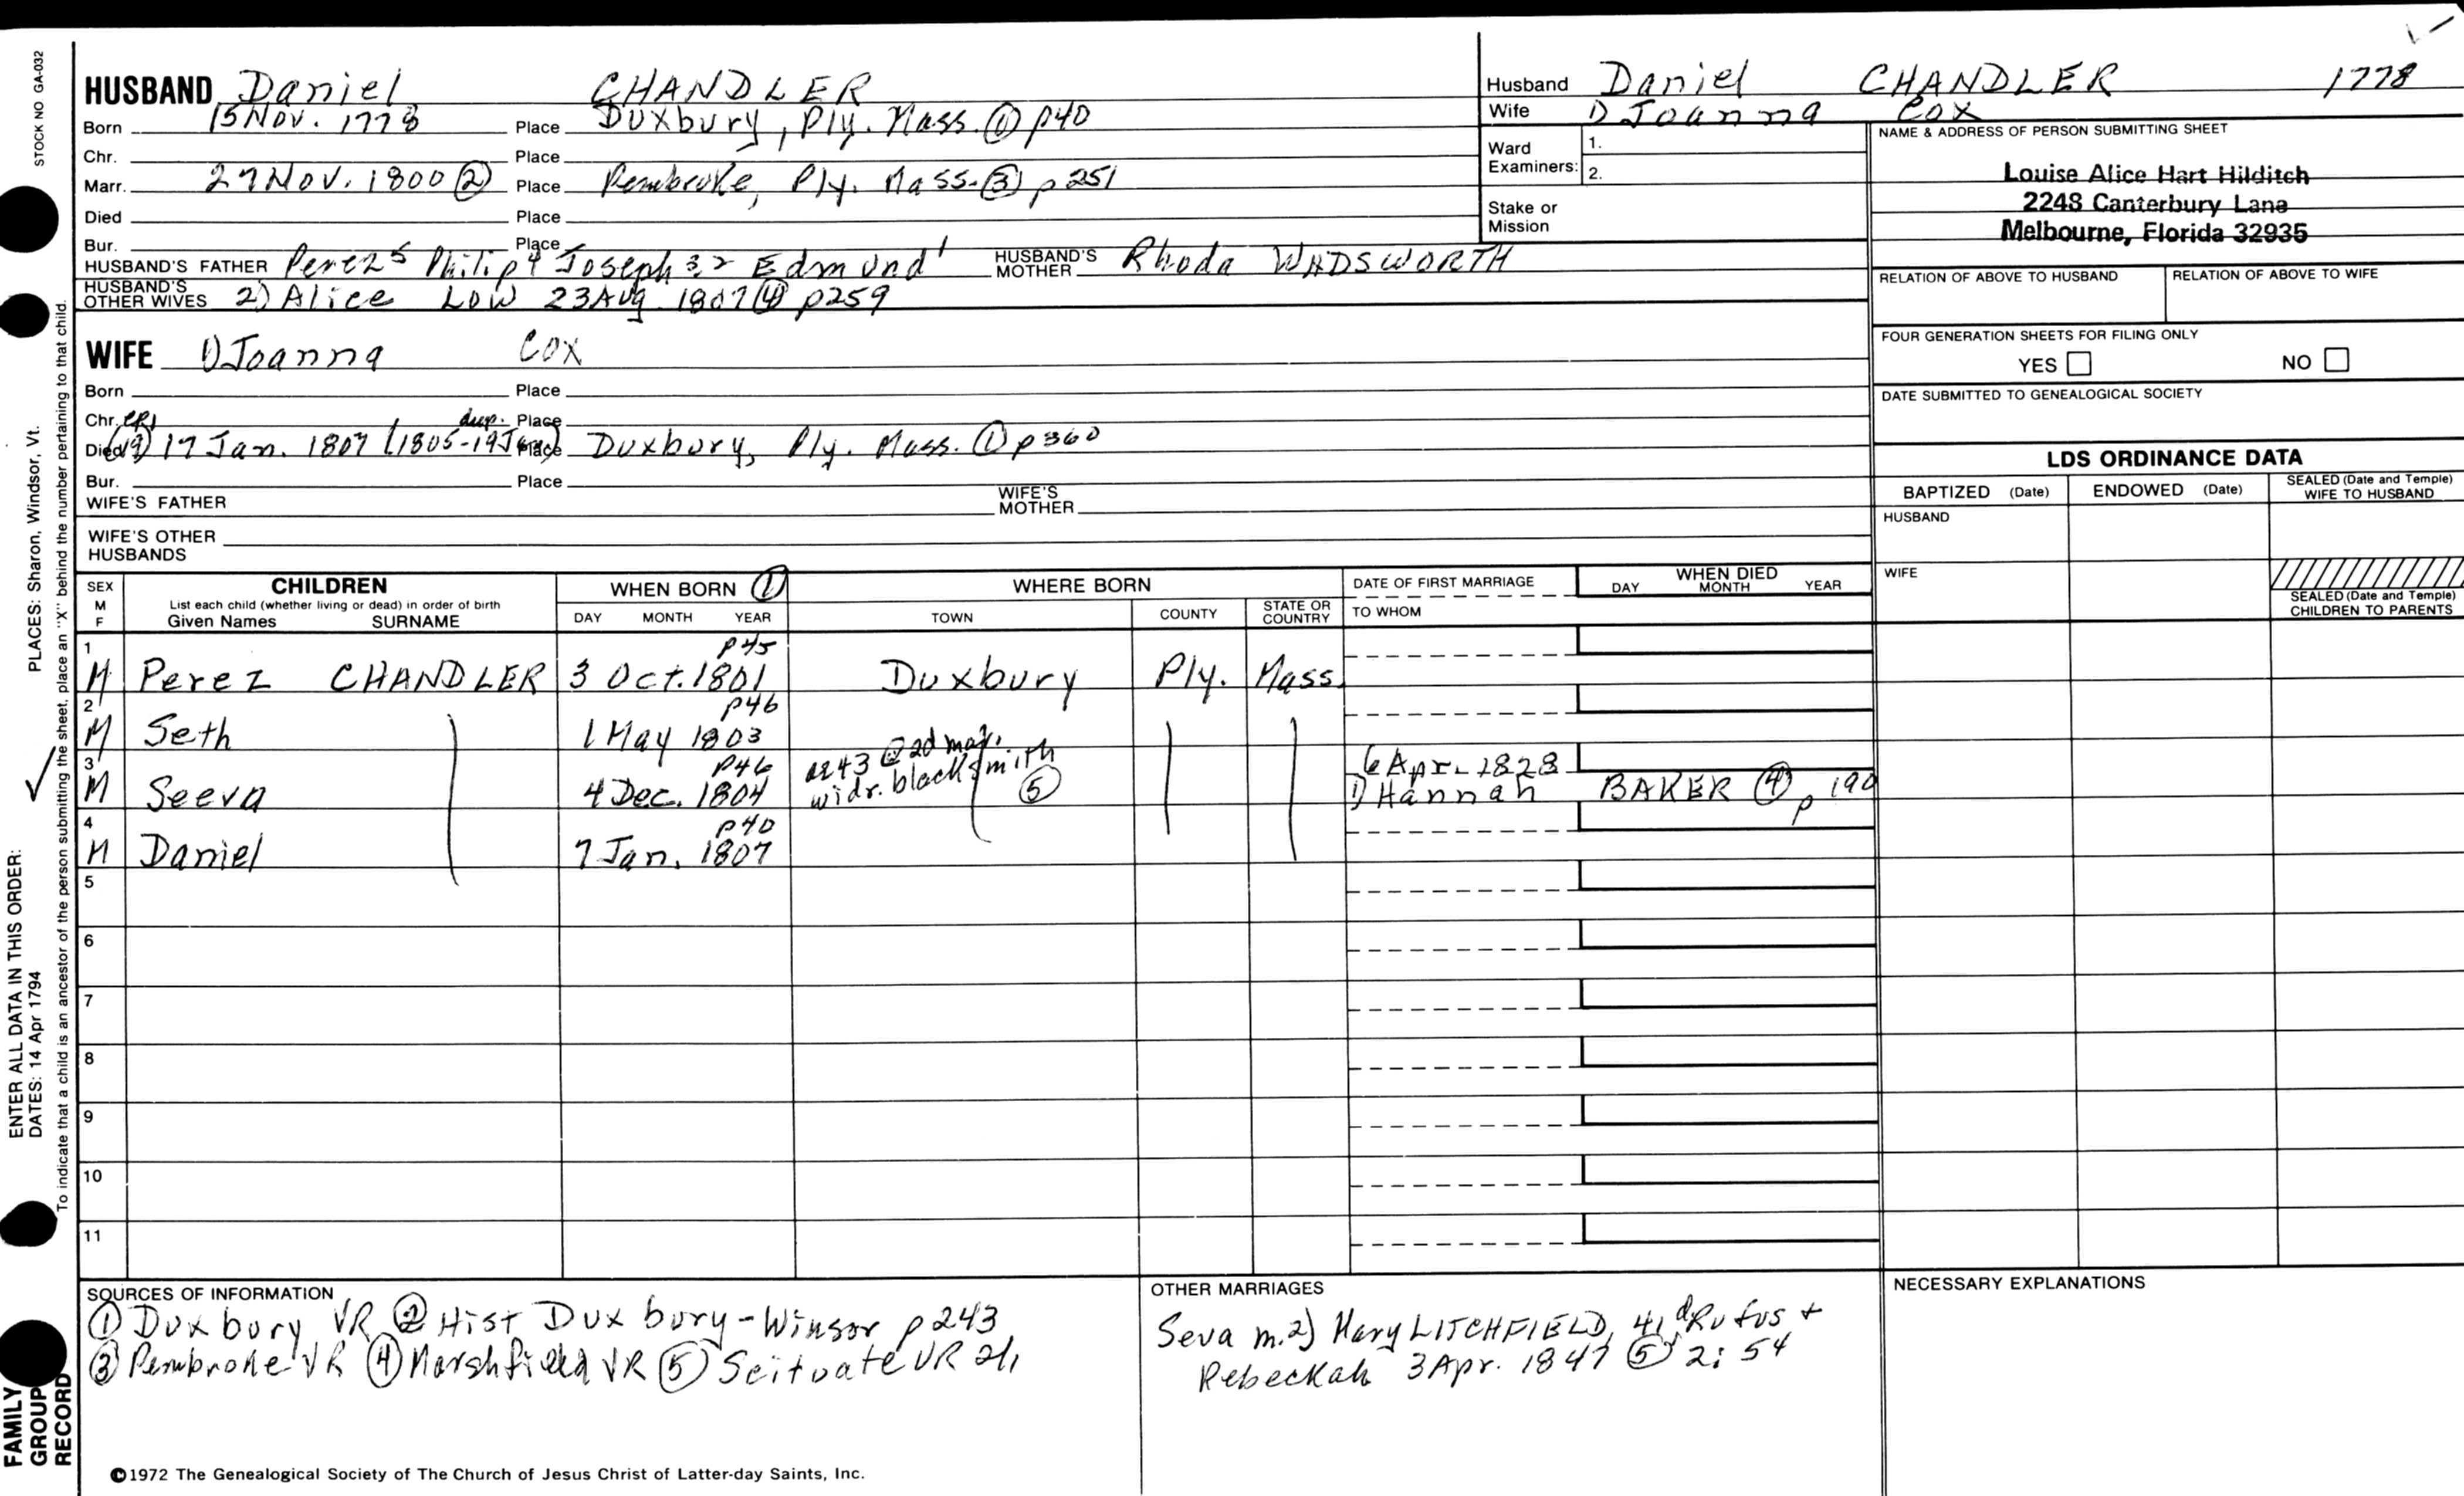 STOCK NO GA-032
HUSBAND Daniel CHANDLER
Born 15 Nov. 1778 Place Duxbury, Ply. Mass. ① p40
Chr. Place
Marr. 27 Nov. 1800 ② Place Pembroke, Ply. Mass. ③ p 251
Died Place
Bur. Place
HUSBAND'S FATHER Perez5 Philip4 Joseph 3 2 Edmund1 HUSBAND'S MOTHER Rhoda WADSWORTH
HUSBAND'S OTHER WIVES 2) Alice LOW 23 Aug. 1807 ④ p259
Husband Daniel CHANDLER 1778
Wife 1) Joanna COX
Ward Examiners: 1.
2.
Stake or Mission
NAME & ADDRESS OF PERSON SUBMITTING SHEET
Louise Alice Hart Hilditch
2248 Canterbury Lane
Melbourne, Florida 32935
RELATION OF ABOVE TO HUSBAND RELATION OF ABOVE TO WIFE
FOUR GENERATION SHEETS FOR FILING ONLY
YES NO
DATE SUBMITTED TO GENEALOGICAL SOCIETY
WIFE 1) Joanna COX
Born Place
Chr. CR1 dup. Place
Died 17 Jan. 1807 (1805-19 Place Duxbury, Ply. Mass. ① p 360
Bur. Place
WIFE'S FATHER WIFE'S MOTHER
WIFE'S OTHER HUSBANDS
LDS ORDINANCE DATA
BAPTIZED (Date) ENDOWED (Date) SEALED (Date and Temple) WIFE TO HUSBAND
HUSBAND
WIFE
SEALED (Date and Temple) CHILDREN TO PARENTS
SEX M F CHILDREN WHEN BORN ① WHERE BORN DATE OF FIRST MARRIAGE WHEN DIED
List each child (whether living or dead) in order of birth
Given Names SURNAME DAY MONTH YEAR TOWN COUNTY STATE OR COUNTRY TO WHOM DAY MONTH YEAR
1 p45
M Perez CHANDLER 3 Oct. 1801 Duxbury Ply. Mass.
2 p46
M Seth 1 May 1803
3 p46 ae 43 @ 2d mar. 6 Apr. 1828
M Seeva 4 Dec. 1804 widr. blacksmith ⑤ 1) Hannah BAKER ④ p 190
4 p40
M Daniel 7 Jan. 1807
5
6
7
8
9
10
11
SOURCES OF INFORMATION
① Duxbury VR ② Hist Duxbury-Winsor p243
③ Pembroke VR ④ Marshfield VR ⑤ Scituate VR
OTHER MARRIAGES
Seva m. 2) Mary LITCHFIELD, 41, d Rufus +
Rebeckah 3 Apr. 1847 ⑤ 2: 54
NECESSARY EXPLANATIONS
©1972 The Genealogical Society of The Church of Jesus Christ of Latter-day Saints, Inc.
PLACES: Sharon, Windsor, Vt.
To indicate that a child is an ancestor of the person submitting the sheet, place an "X" behind the number pertaining to that child.
ENTER ALL DATA IN THIS ORDER:
DATES: 14 Apr 1794
FAMILY
GROUP
RECORD